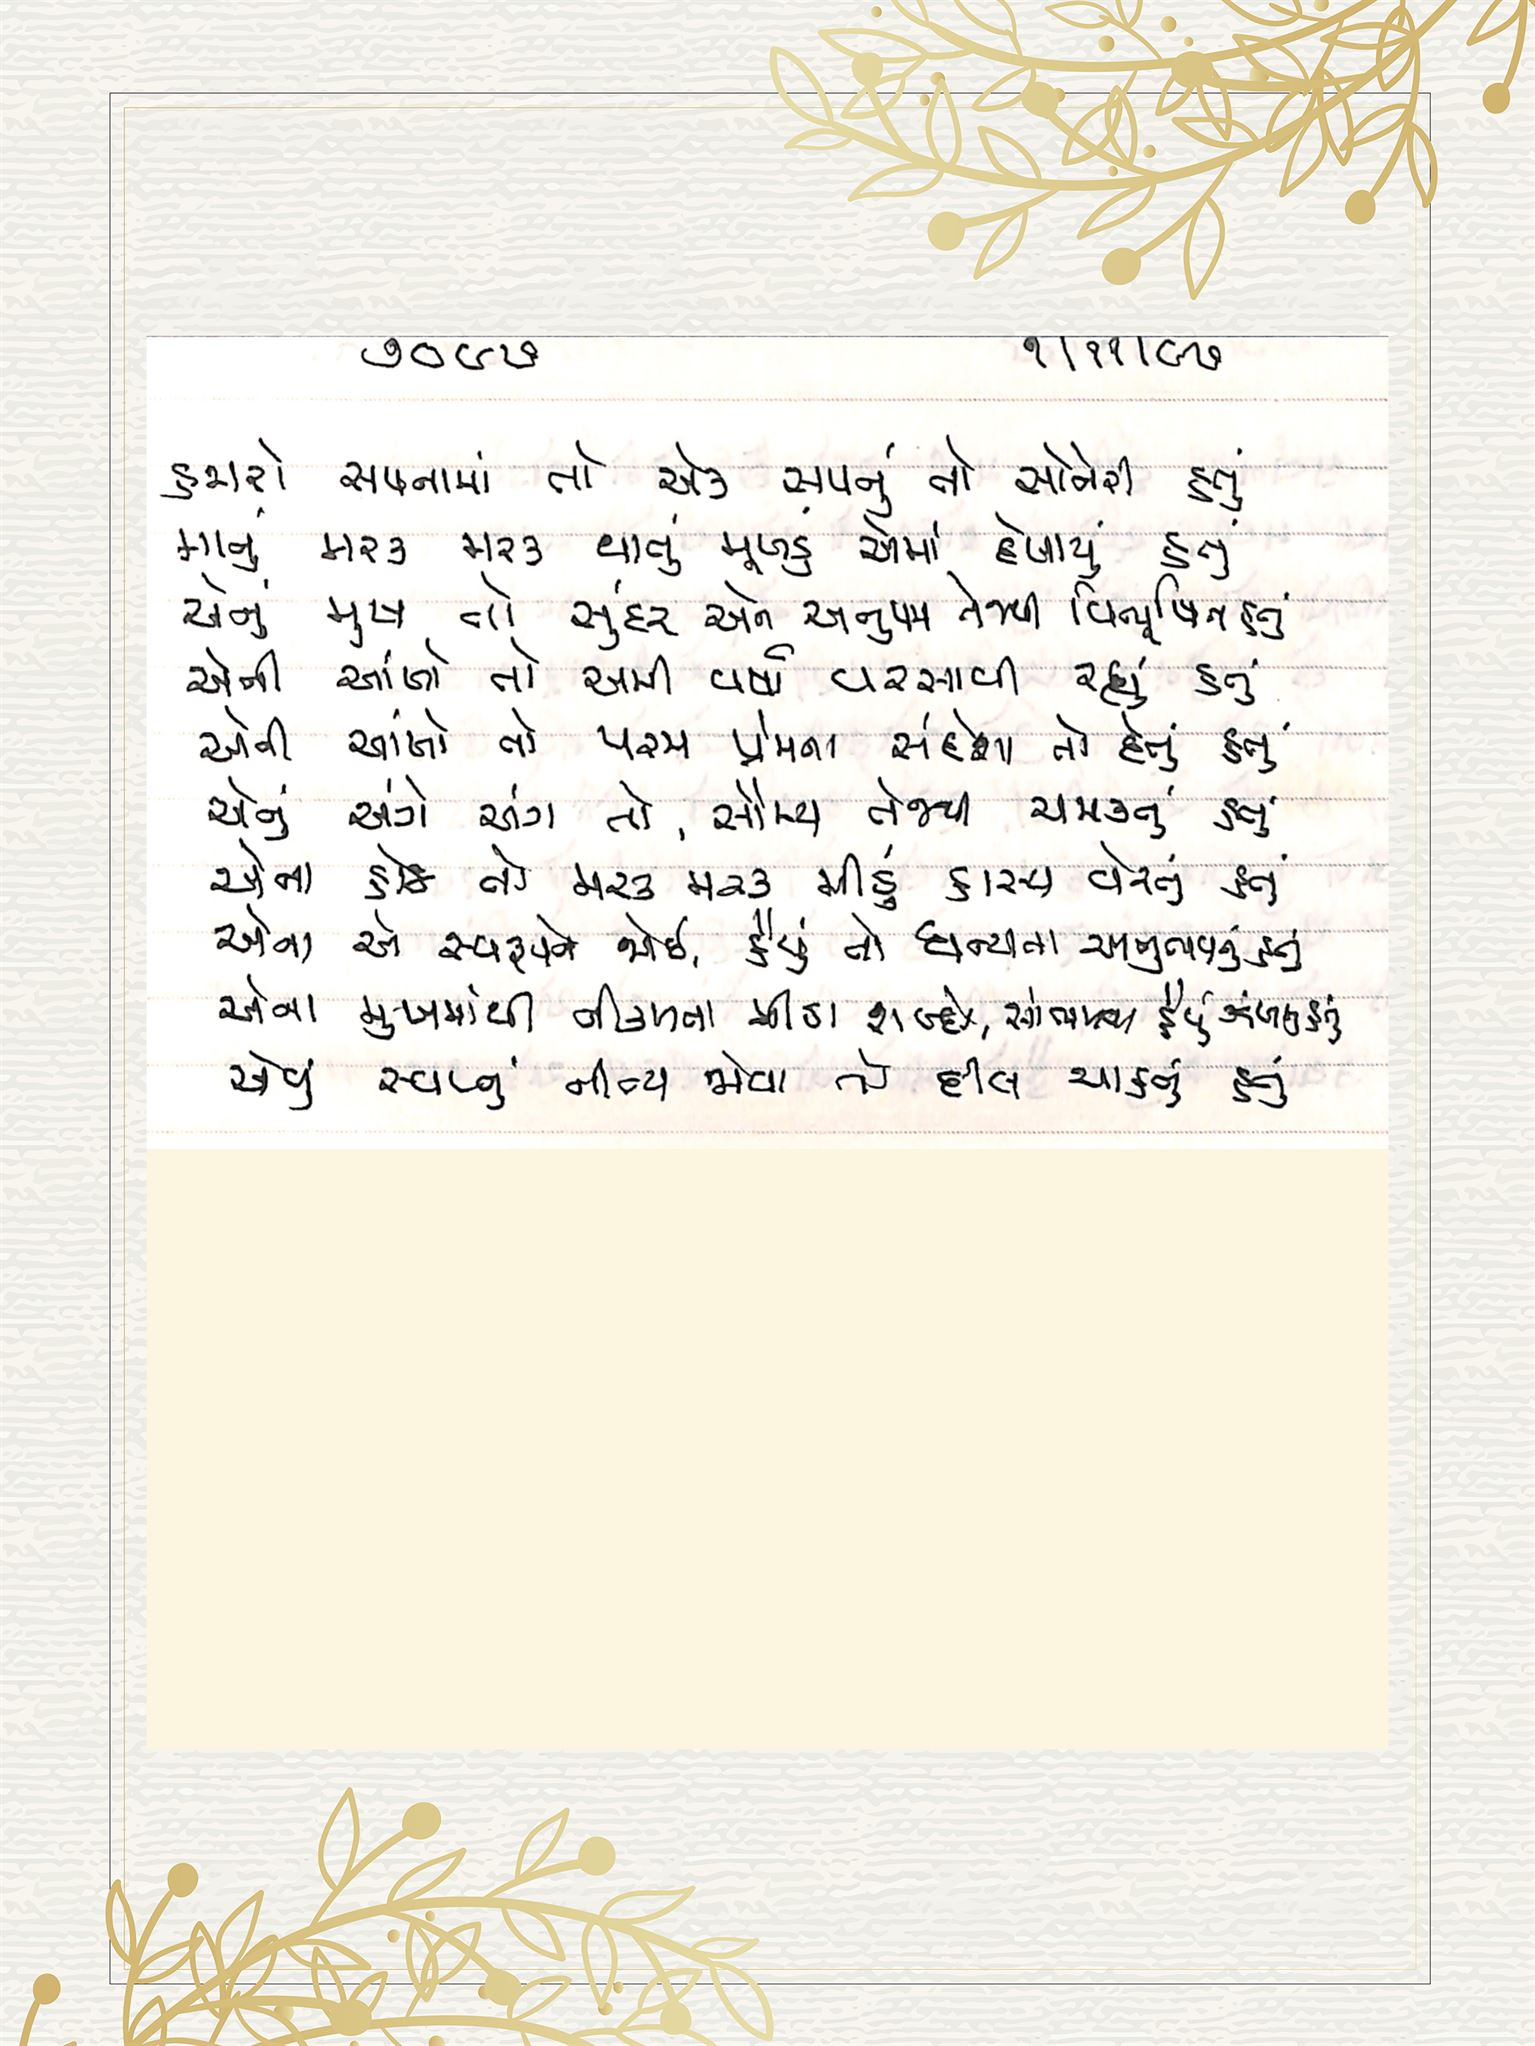 ૭૦૯૭ ૧/૧૧/૯૭
હજારો સપનામાં તો એક સપનું તો સોનેરી હતું
માનું મરક મરક થાતું મૂખડું એમાં દેખાયું હતું
એનું મુખ તો સુંદર એને અનુપમ તેજથી વિભૂષિત હતું
એની આંખો તો અમી વર્ષા વરસાવી રહ્યું હતું
એની આંખો તો પરમ પ્રેમના સંદેશા તો દેતું હતું
એનું અંગે અંગ તો, સૌમ્ય તેજથી ચમકતું હતું
એના હોઠ તો મરક મરક મીઠું હાસ્ય વેરતું હતું
એના એ સ્વરૂપને જોઈ, હૈયું તો ધન્યતા અનુભવતું હતું
એના મુખમાંથી નીકળતા મીઠા શબ્દો, સાંભળવા હૈયું ઝંખતુ હતું
એવું સ્વપ્નું નીત્ય જોવા તો દીલ ચાહતું હતું